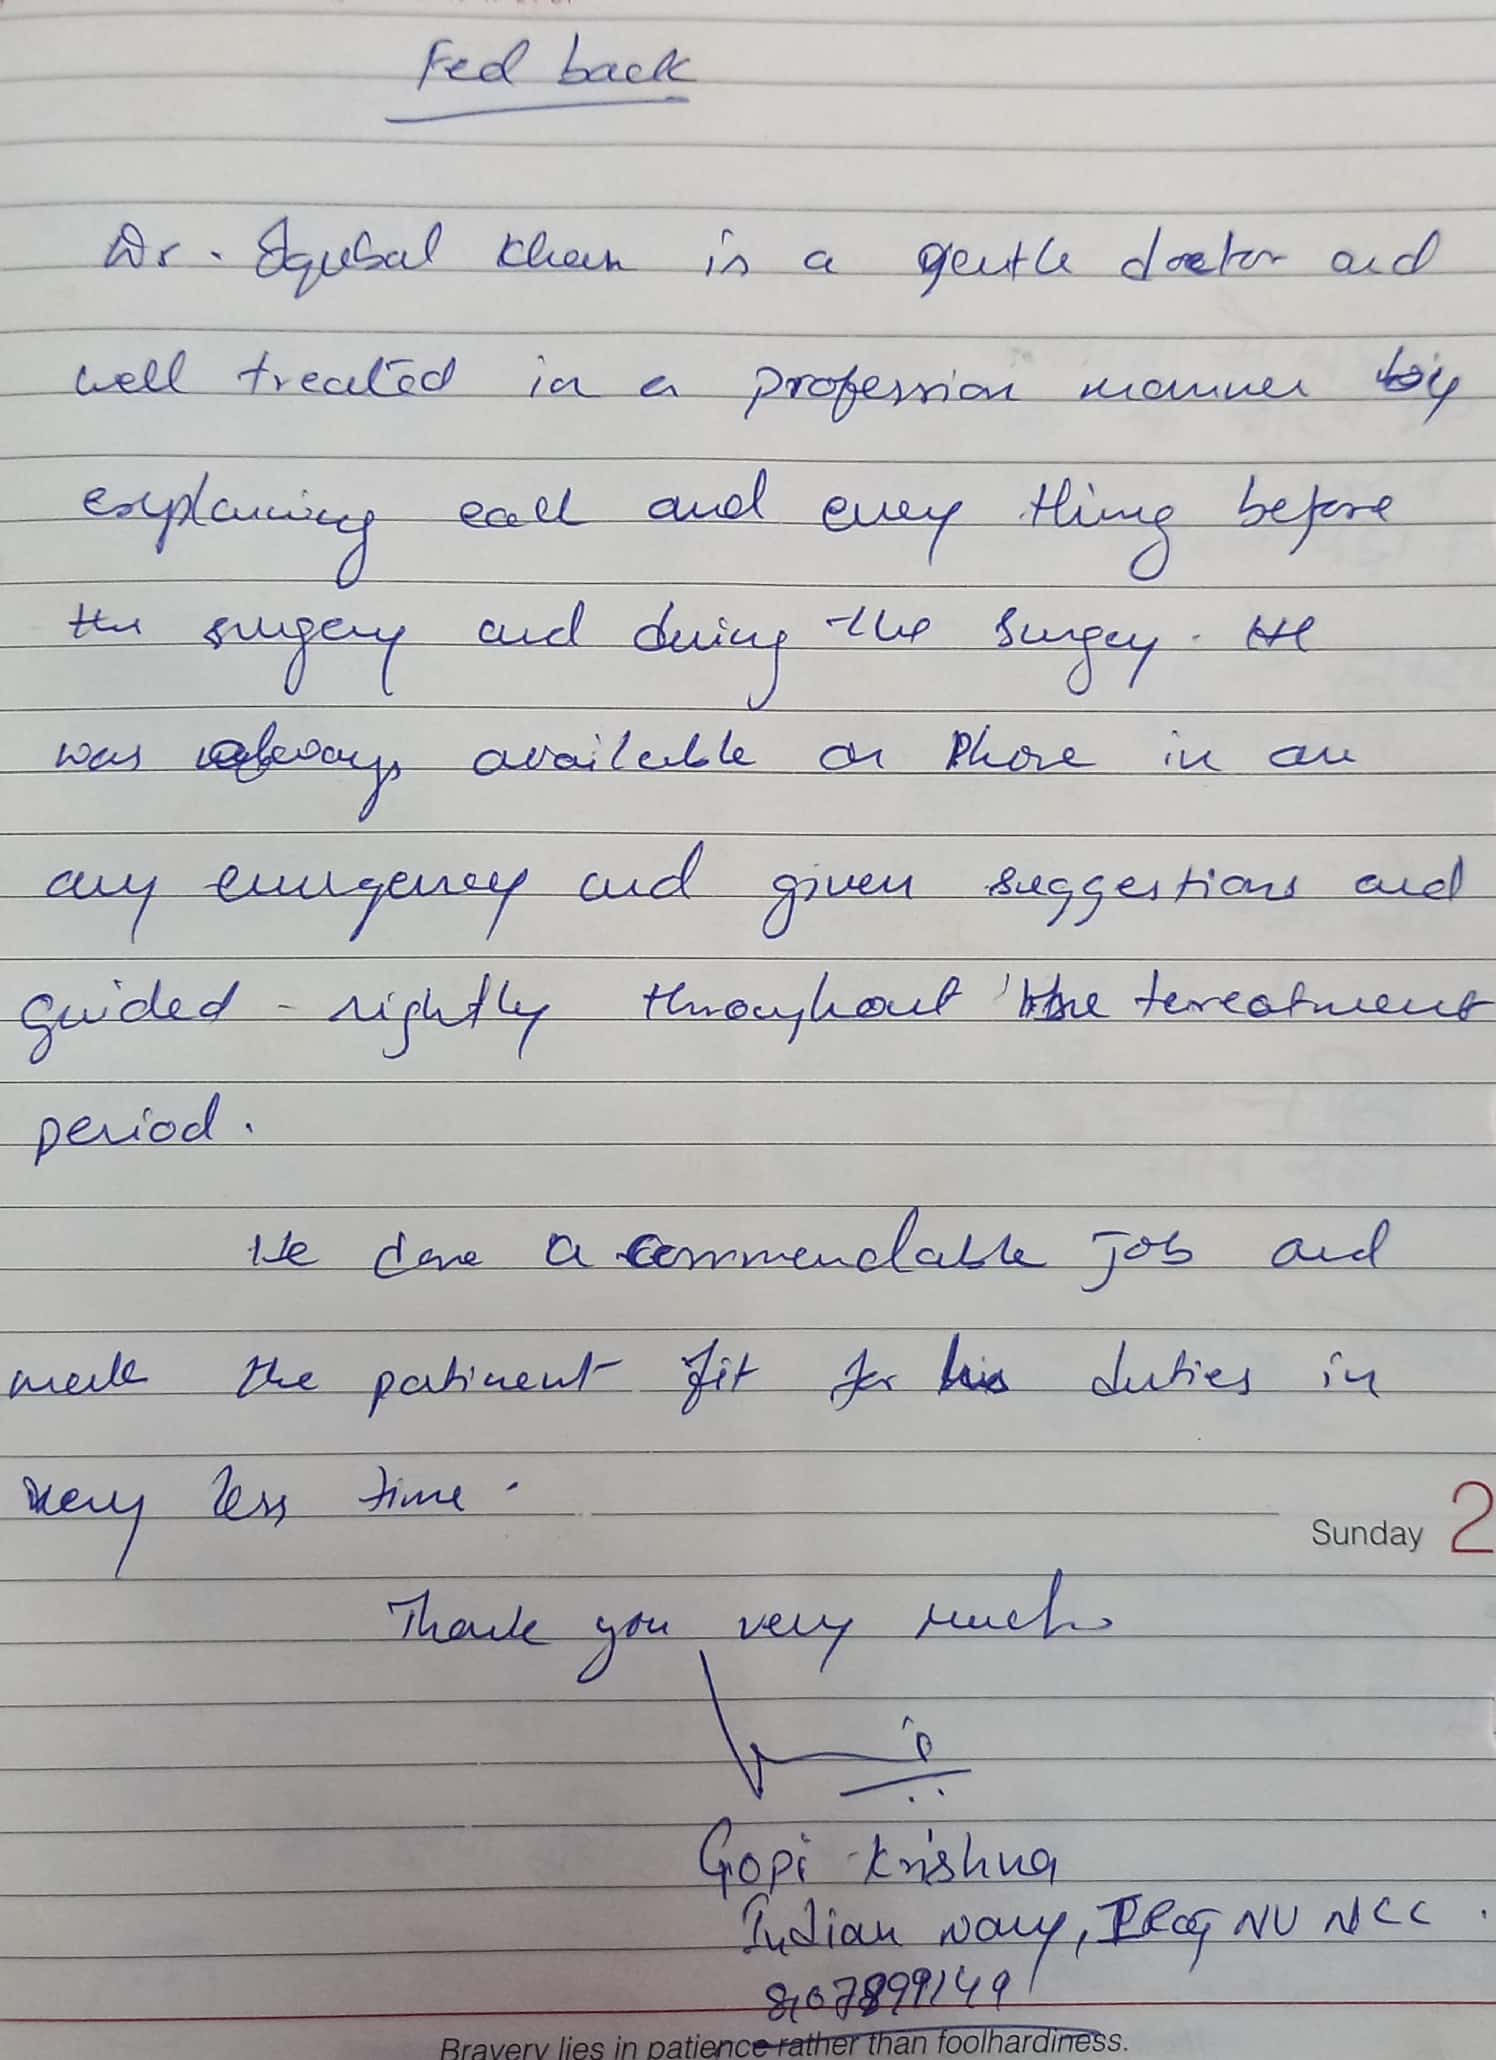 Fed back
Dr. Iqubal Khan is a gentle doctor and
well treated in a profession manner by
explaining each and every thing before
the surgery and during the surgey. He
was always available on Phone in an
any emergency and given suggestions and
guided rightly throughout the terreatment
period.
He done a commendable job and
made the patinent fit for his duties in
very less time.
Sunday 2
Thank you very much
Gopi Krishna
Indian Navy, NU NCC.
Bravery lies in patience rather than foolhardiness.